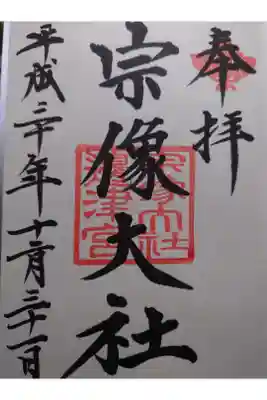 奉拝
宗像大社
平成三十年十二月三十一日
宗像大社
邊津宮